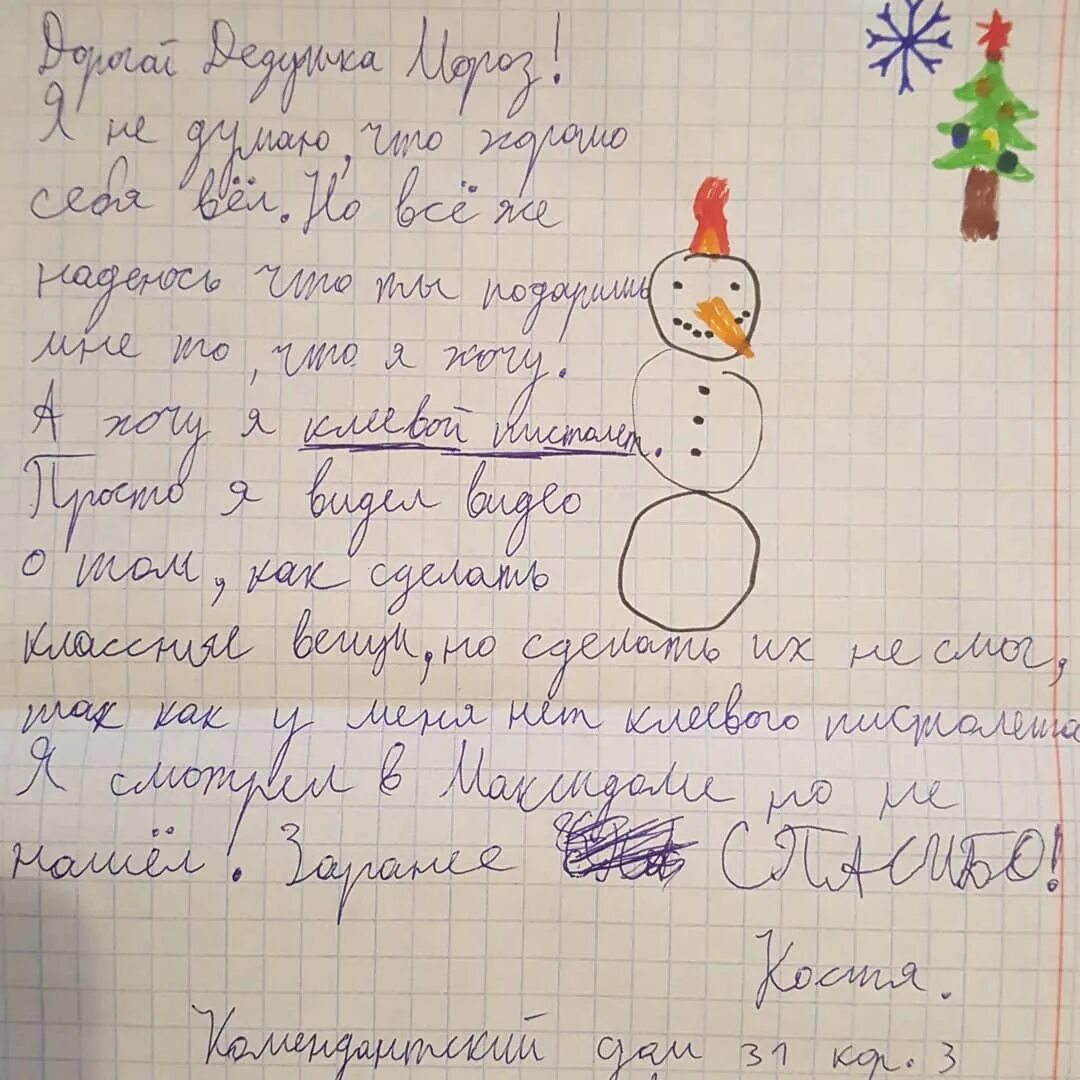 Дорогой Дедушка Мороз!
Я не думаю, что хорошо
себя вёл. Но всё же
надеюсь что ты подаришь
мне то, что я хочу!
А хочу я клеевой пистолет.
Просто я видел видео
о том, как сделать
классные вещи, но сделать их не смог,
так как у меня нет клеевого пистолета
Я смотрел в Максидоме но не
нашёл! Заранее СПАСИБО!
Костя.
Комендантский дом 31 кор. 3